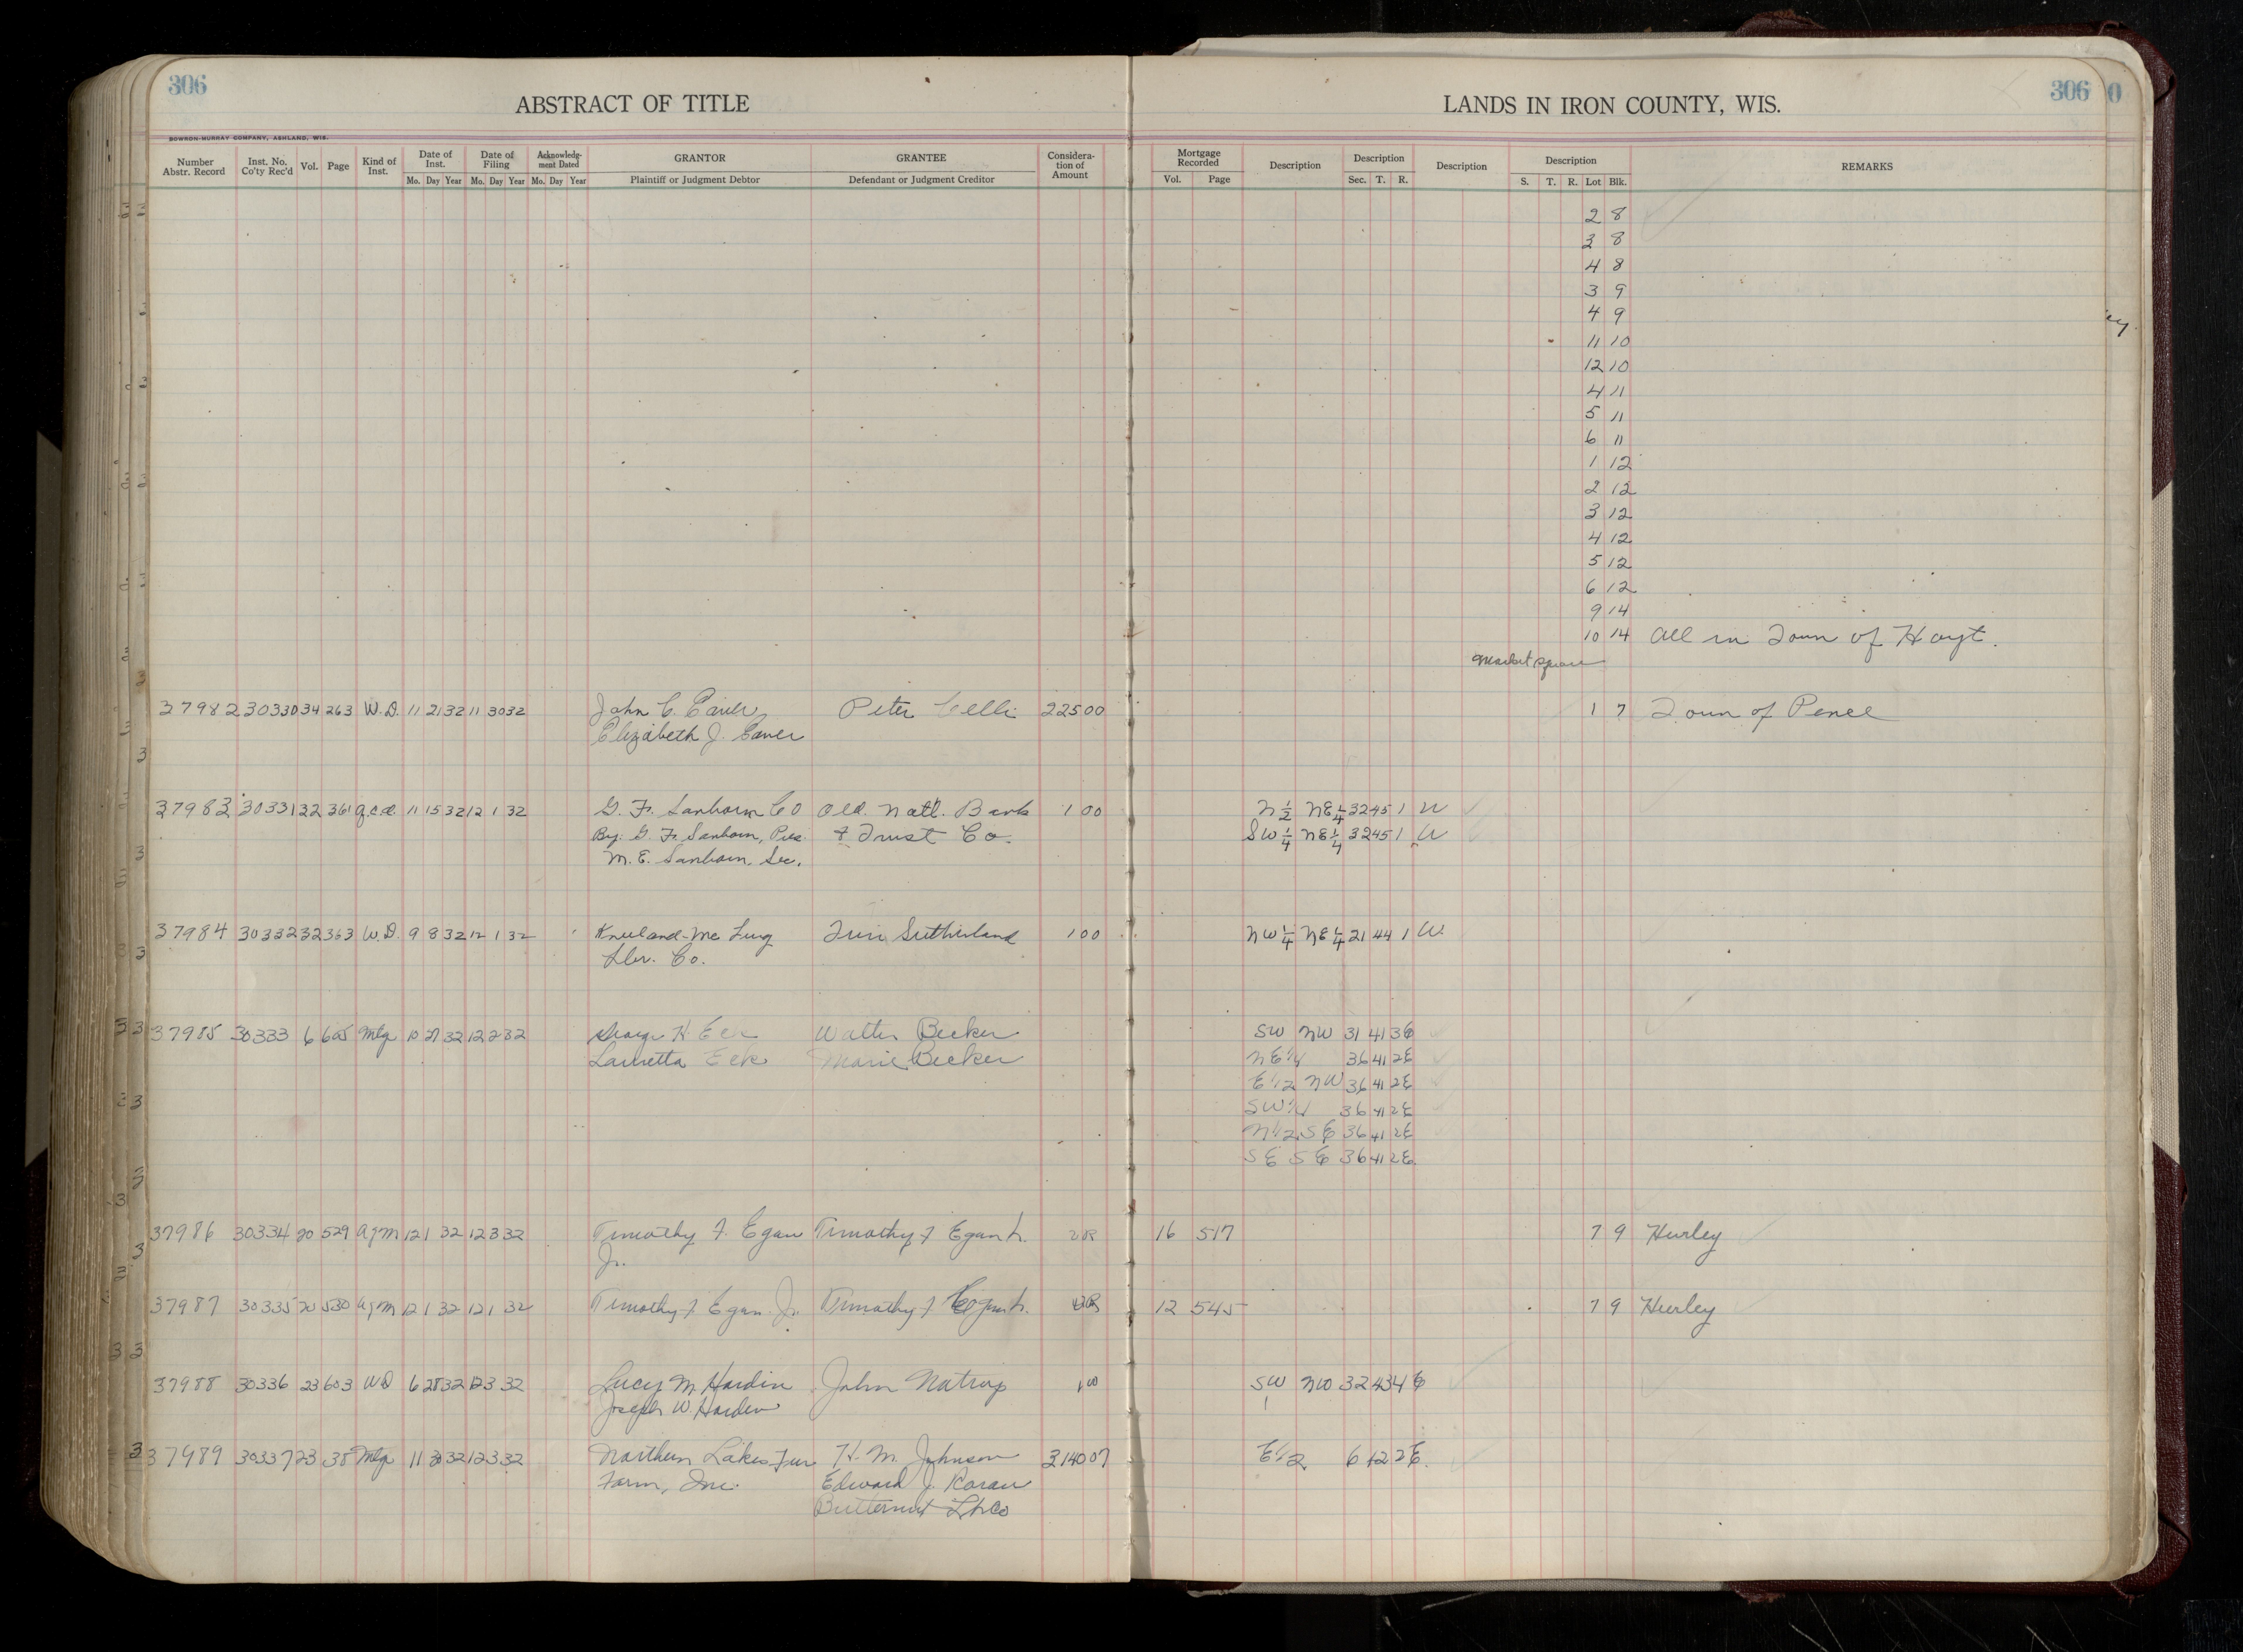 306
ABSTRACT OF TITLE
LANDS IN IRON COUNTY, WIS.
306
BOWRON-MURRAY COMPANY, ASHLAND, WIS.
Number Abstr. Record Inst. No. Co'ty Rec'd Vol. Page Kind of Inst. Date of Inst. Mo. Day Year Date of Filing Mo. Day Year Acknowledg-ment Dated Mo. Day Year GRANTOR Plaintiff or Judgment Debtor GRANTEE Defendant or Judgment Creditor Considera-tion of Amount Mortgage Recorded Vol. Page Description Description Sec. T. R. Description Description S. T. R. Lot Blk. REMARKS
2 8
3 8
4 8
3 9
4 9
11 10
12 10
4 11
5 11
6 11
1 12
2 12
3 12
4 12
5 12
6 12
9 14
10 14 All in Town of Hoyt.
Market Square
37982 30330 34 263 W.D. 11 21 32 11 30 32 John C. Peter Celli 225 00 1 7 Town of Pence
Elizabeth J.
37983 30331 22 361 q.c.d. 11 15 32 12 1 32 G. F. Sanborn Co Old Natl. Bank 1 00 N 1/2 NE 1/4 32 45 1 W
By: G. F. Sanborn, Pres. & Trust Co. SW 1/4 NE 1/4 32 45 1 W
M. E. Sanborn, Sec.
37984 30332 32 363 W.D. 9 8 32 12 1 32 Kneeland-Mc Lurg Sutherland 1 00 NW 1/4 NE 1/4 21 44 1 W.
Lbr. Co.
37985 30333 6 605 Mtg 10 27 32 12 2 32 George H Eck Walter Becker SW NW 31 41 3E
Lauretta Eck Marie Becker NE 1/4 36 41 2E
E 1/2 NW 36 41 2E
SW 1/4 36 41 2E
N 1/2 SE 36 41 2E
SE SE 36 41 2E
37986 30334 20 529 AgM 12 1 32 12 3 32 Timothy F. Egan Timothy F Egan 16 517 7 9 Hurley
Jr.
37987 30335 20 530 AgM 12 1 32 12 1 32 Timothy F Egan Jr. Timothy F Egan 12 545 7 9 Hurley
37988 30336 23 603 WD 6 28 32 12 3 32 Lucy M. Hardin John Natrop 1 00 SW NW 32 43 4 E
Joseph W. Harden
37989 30337 23 38 Mtg 11 30 32 12 3 32 Northern Lakes Fur H. M. Johnson 3140 07 E 1/2 6 42 2E.
Farm, Inc. Edward J. Koran
Butternut Lbr Co